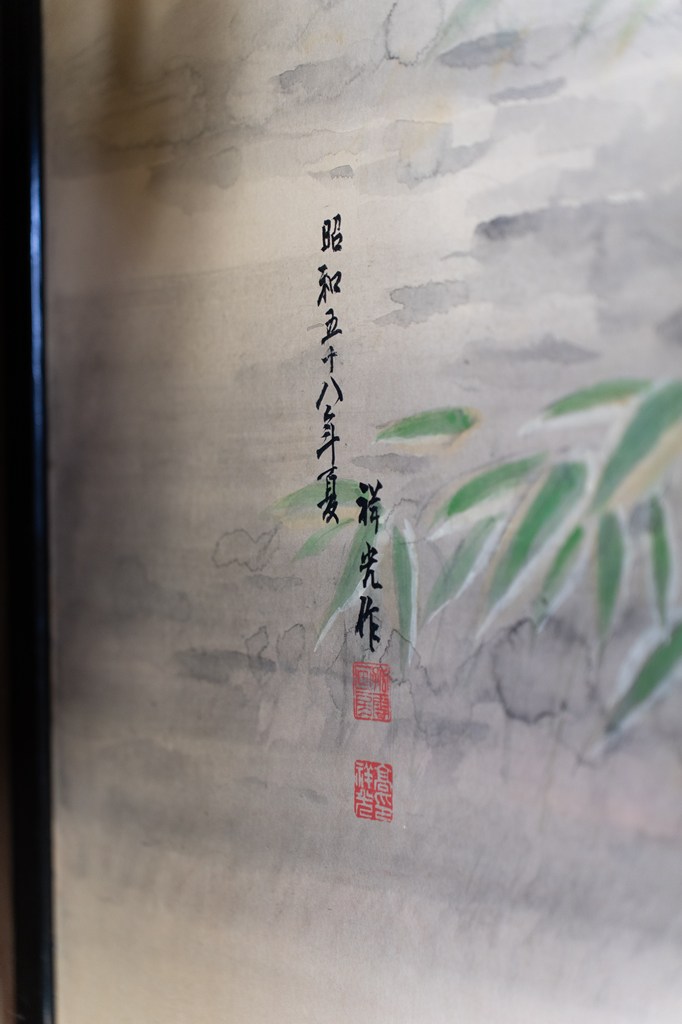 昭和五十八年夏
祥光作